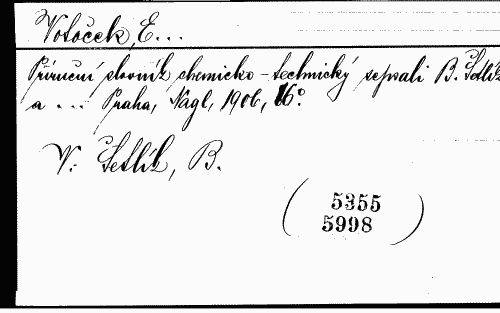 Votoček, E...
Příruční slovník chemicko-technický sepsali B. Šetlík
a ... Praha, Nagl, 1906, 16°.
V. Šetlík, B.
( 5355
5998 )